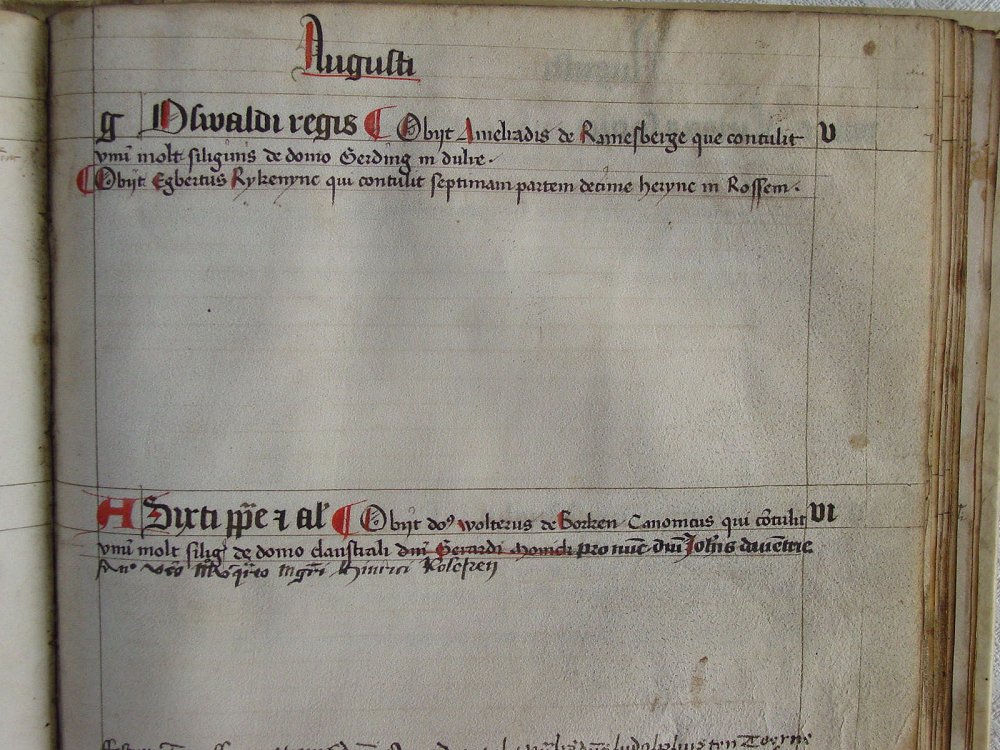 Augusti
g Oswaldi regis Obijt Amelradis de Ramesberge que contulit V
vnū molt siliginis de domo Gerding in dulre.
Obijt Egbertus Rykenync qui contulit septimam partem decime herync in Rossem.
A Sixti ppe ⁊ al' Obijt do⁹ wolterus de Borken Canonicus qui cōtulit VI
vnū molt silig' de domo claustrali dnī Gerardi pro nūc dnī Joh̄is dauentrie